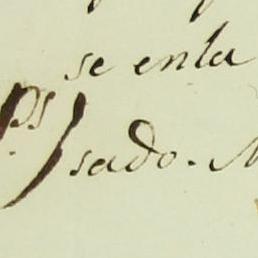 se enla
ps
sado. N